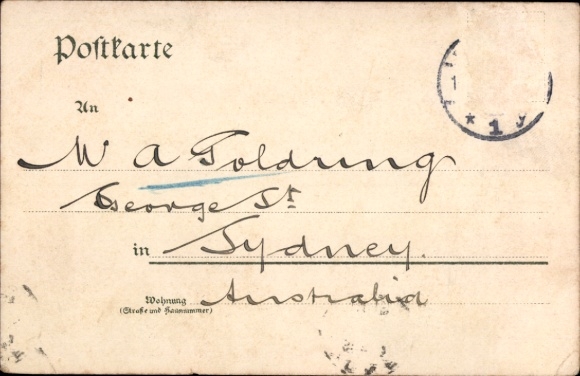 Postkarte
1
* 1 y
An
W A Goldring
George St
in Sydney.
Wohnung Australia
(Straße und Hausnummer)